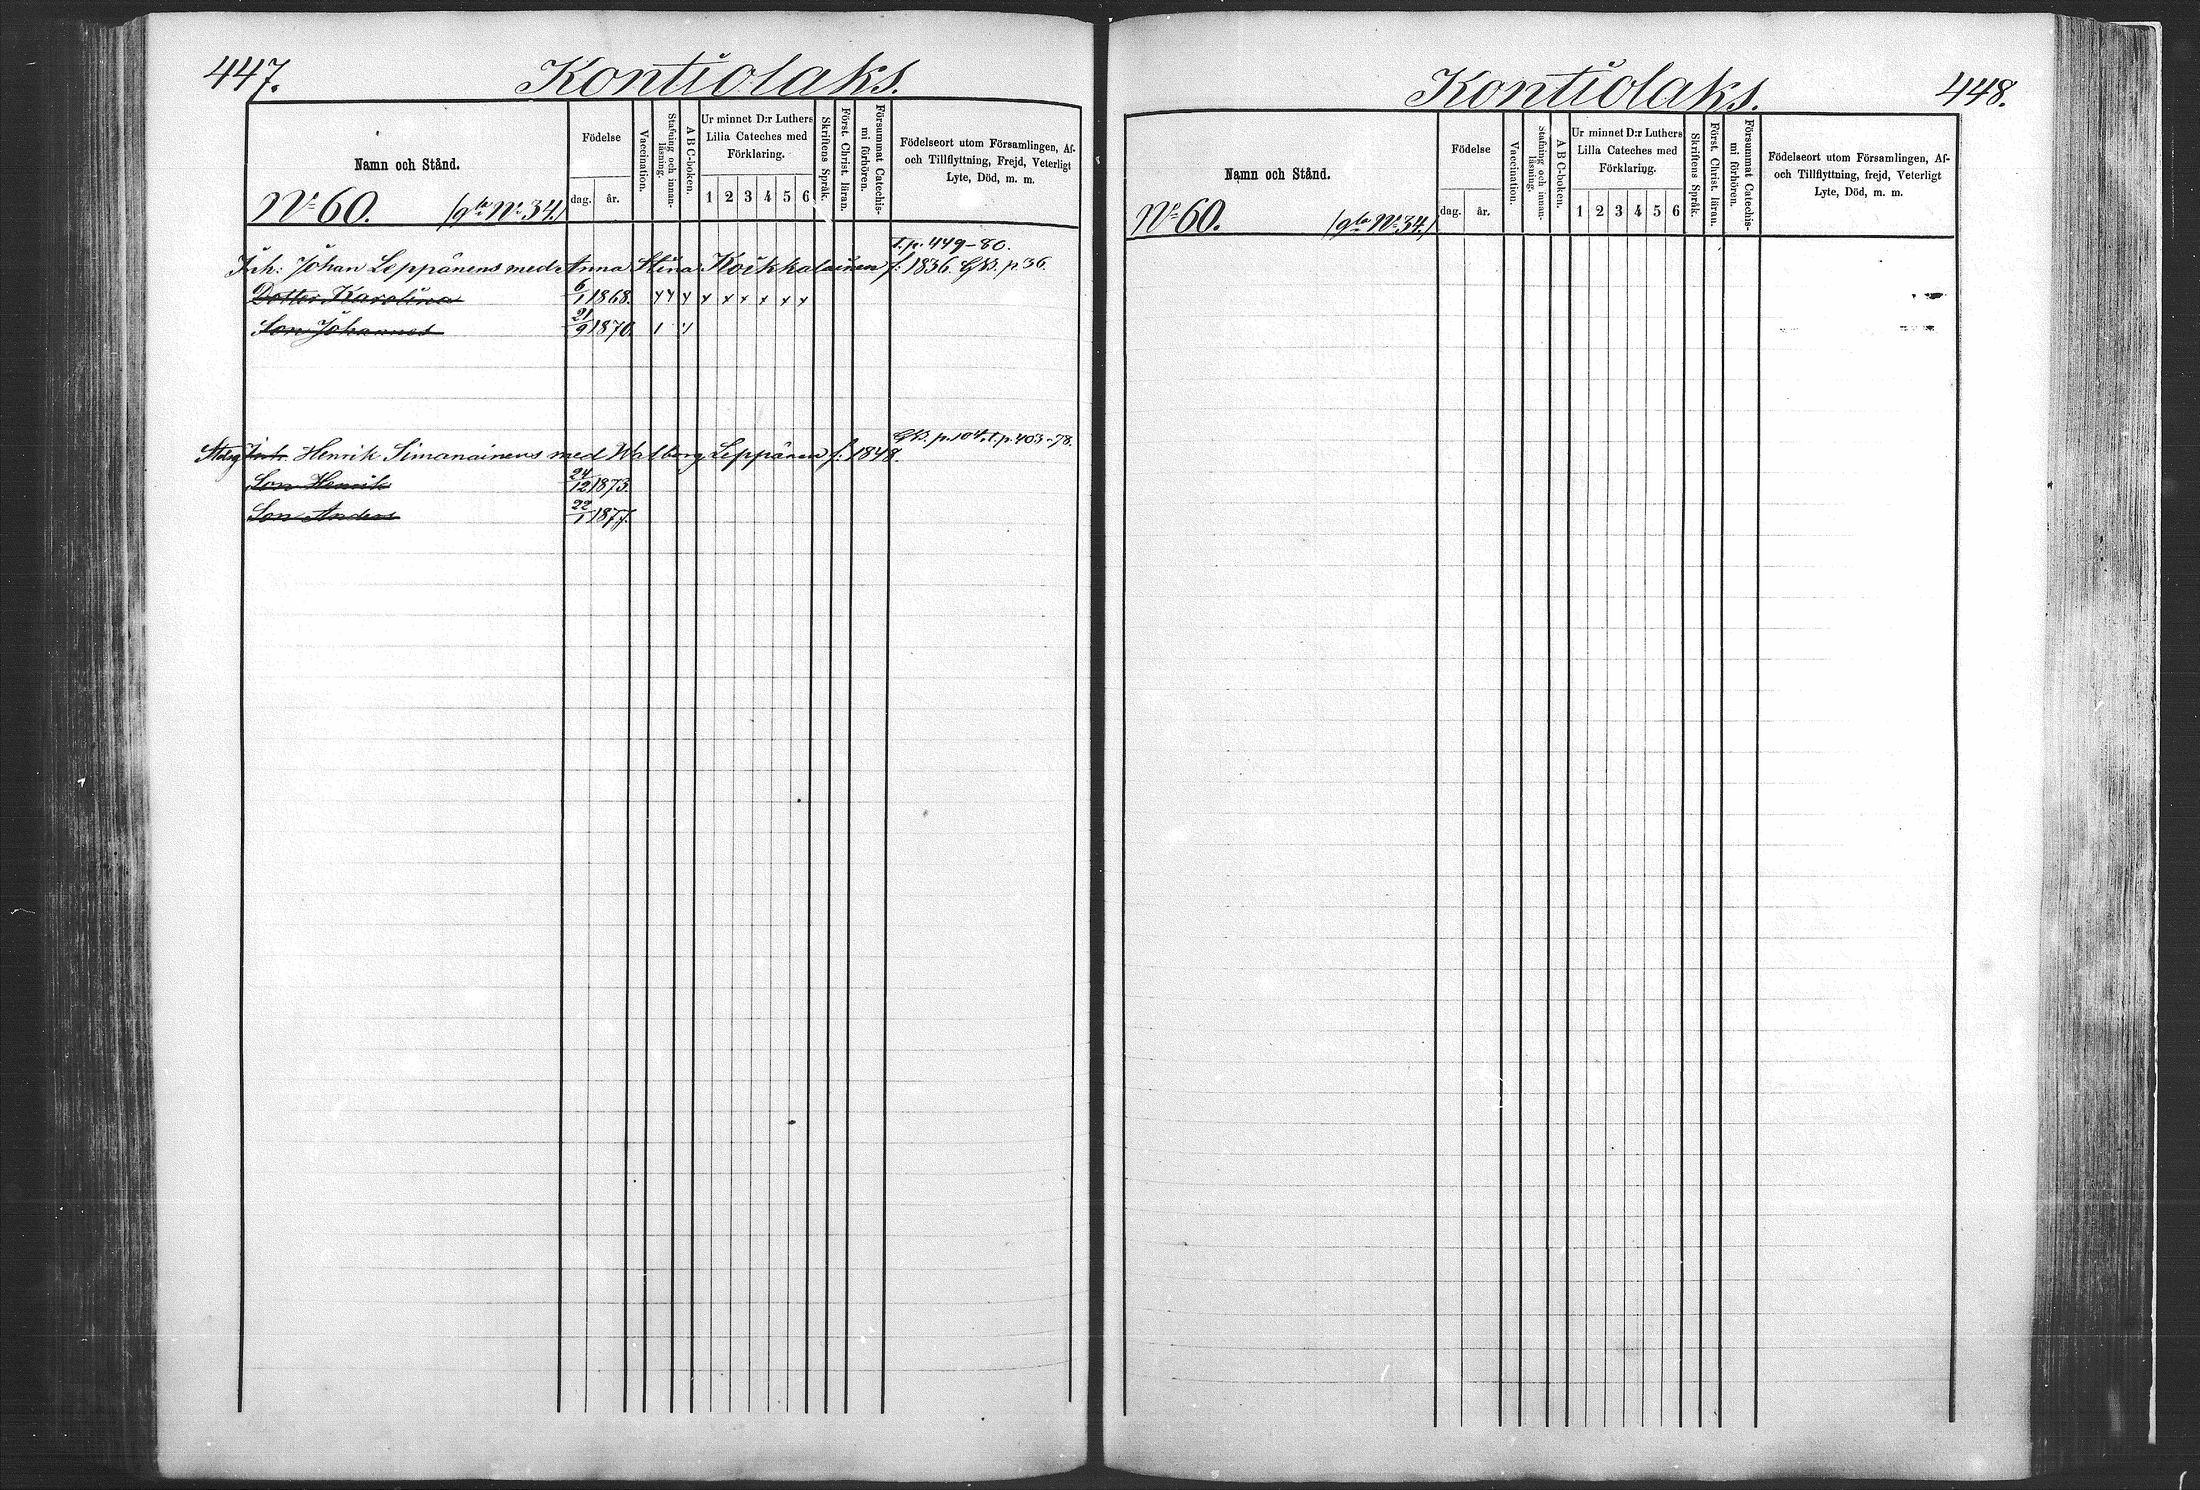 447.
Kontiolaks.
Namn och Stånd.
Födelse
dag. år.
Vaccination.
Stafning och innanläsning.
ABC-boken.
Ur minnet D:r Luthers
Lilla Cateches med
Förklaring.
1 2 3 4 5 6
Skriftens Språk.
Först. Christ. läran.
Försummat Catechismi förhören.
Födelseort utom Församlingen, Af-
och Tillflyttning, Frejd, Veterligt
Lyte, Död, m. m.
No 60. /g:la No 34./
t. p. 449-80.
Inh: Johan Leppänens med Anna Stina Koikkalainen f: 1836. GB. p. 36.
Dotter Karolina 6/1 1868.
Son Johannes 21/9 1870.
GB. p. 104. t. p. 403-78.
Inh. Henrik Simanainens med Walborg Leppänen f: 1848.
Son Henrik 24/12 1873.
Son Anders 22/1 1877.
Kontiolaks.
448.
Namn och Stånd.
Födelse
dag. år.
Vaccination.
Stafning och innanläsning.
ABC-boken.
Ur minnet D:r Luthers
Lilla Cateches med
Förklaring.
1 2 3 4 5 6
Skriftens Språk.
Först. Christ. läran.
Försummat Catechismi förhören.
Födelseort utom Församlingen, Af-
och Tillflyttning, frejd, Veterligt
Lyte, Död, m. m.
No 60. /g:la No 34./